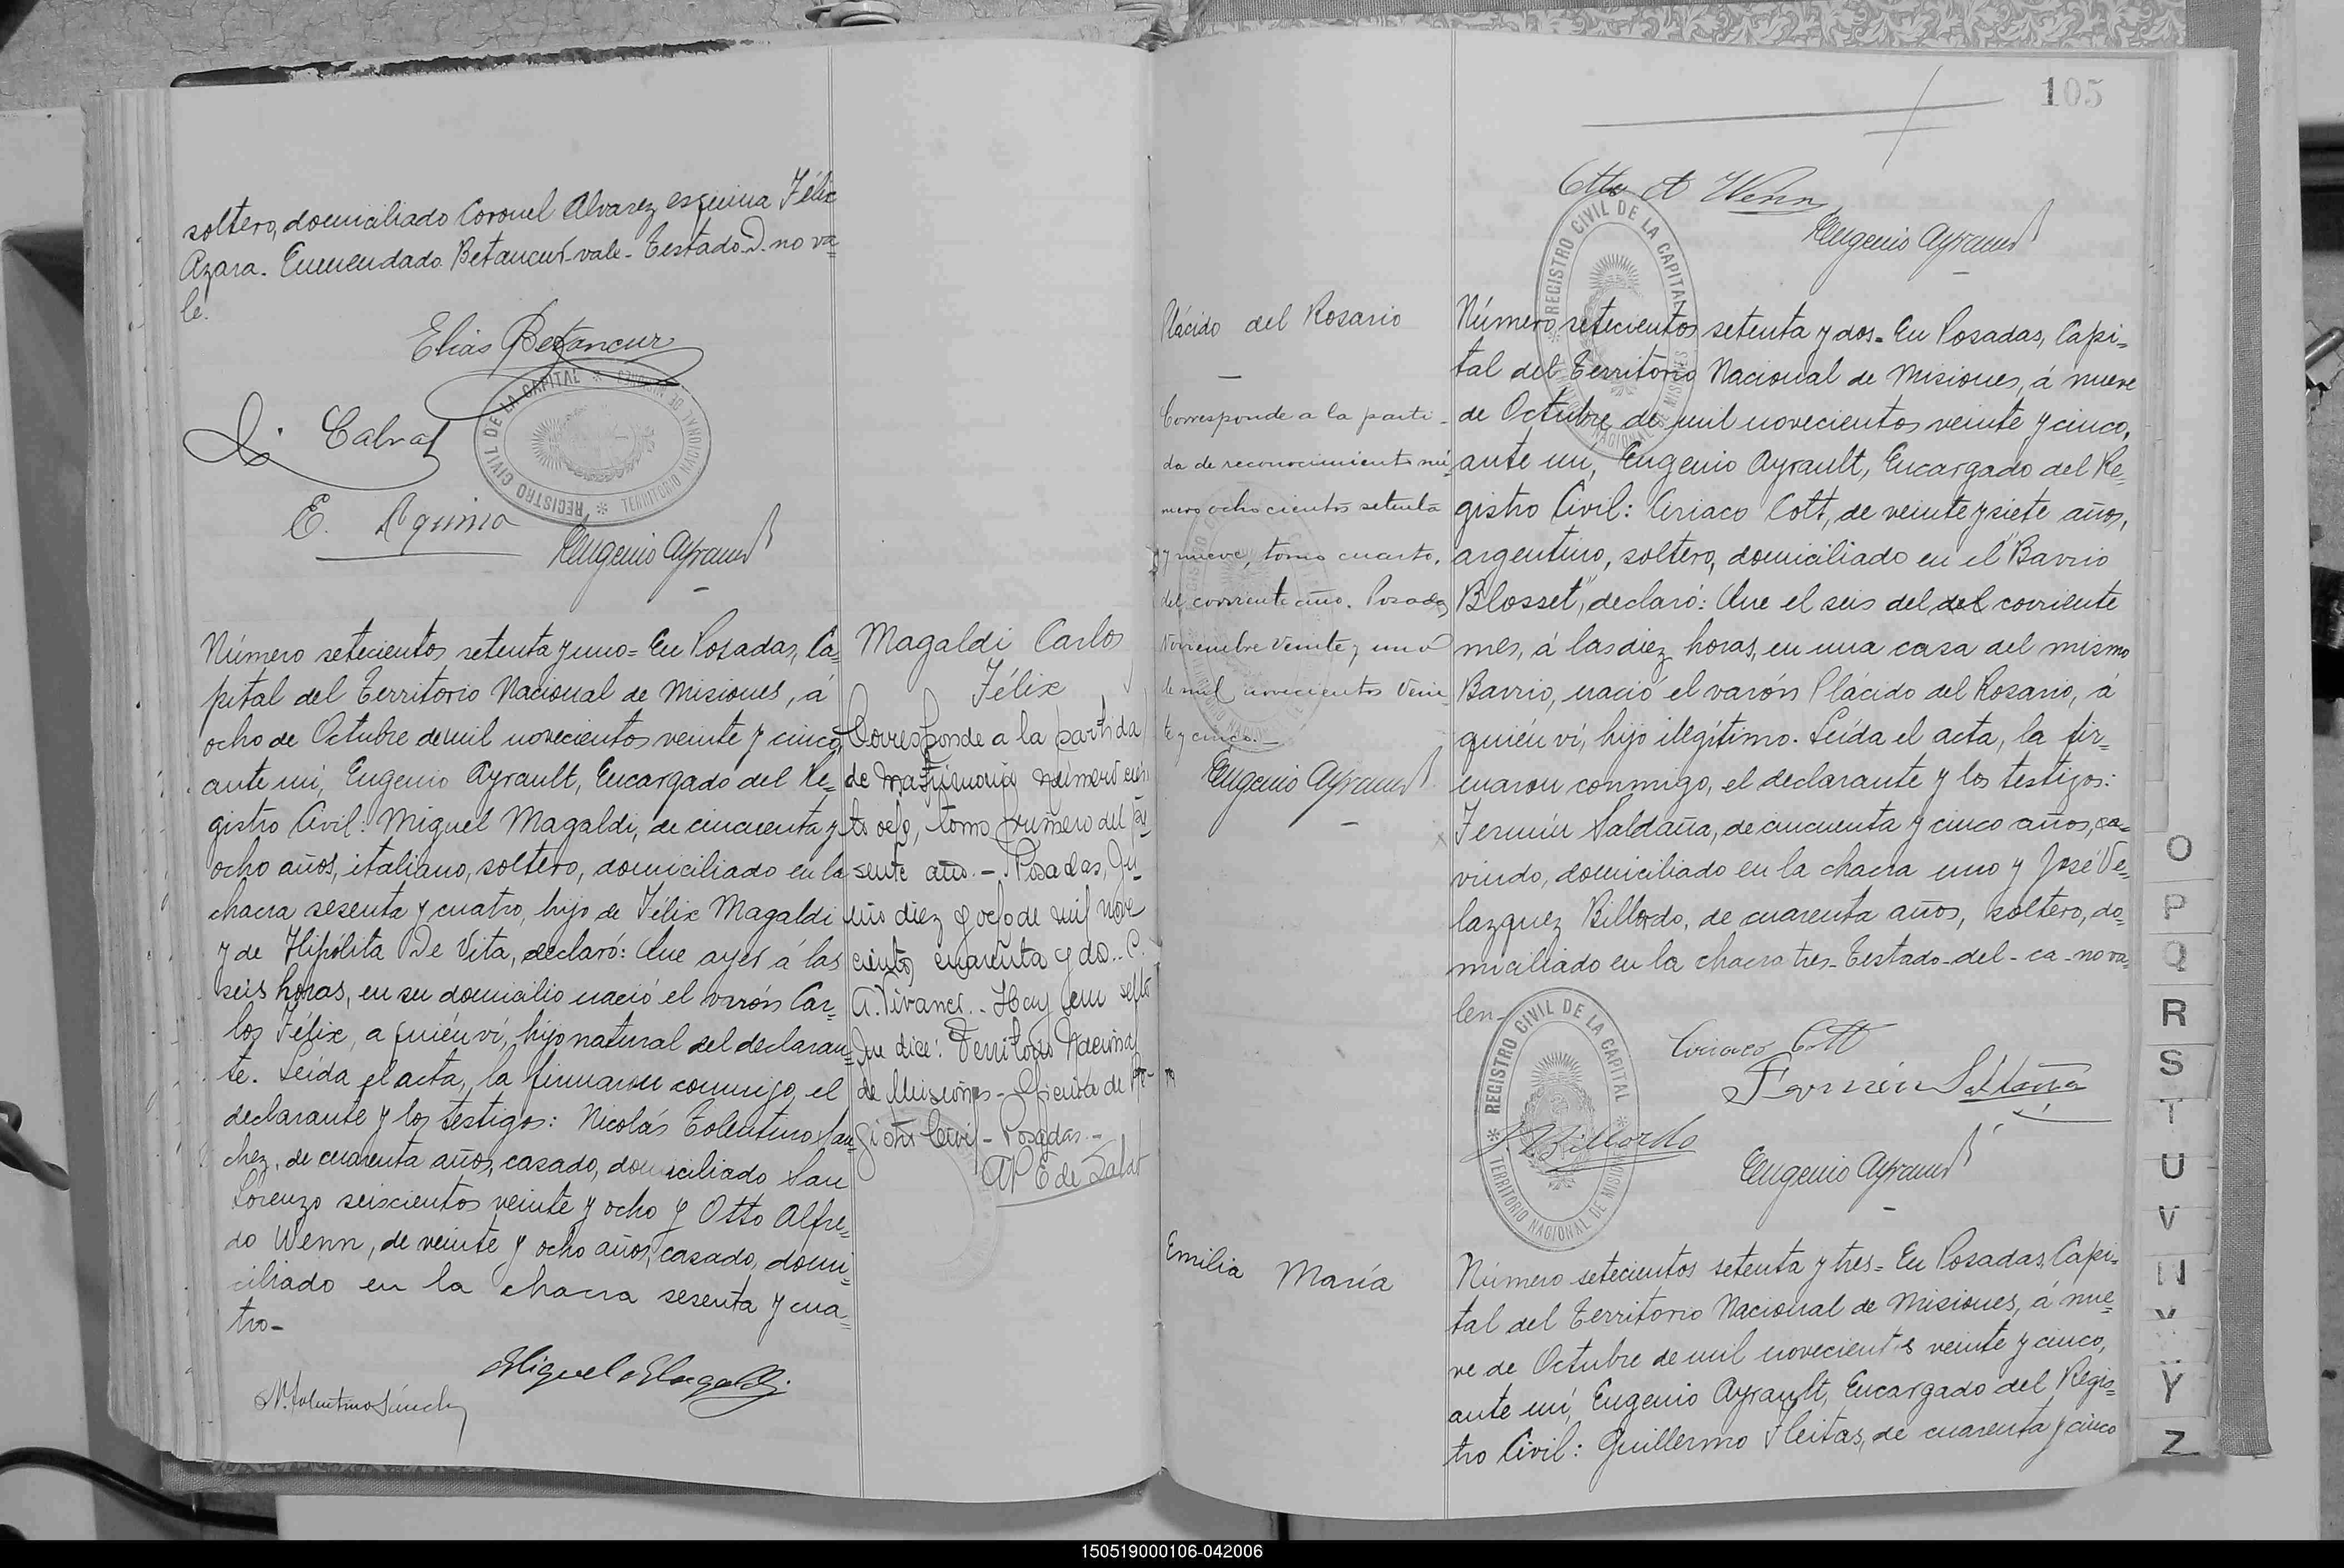 soltero, domiciliado Coronel Alvarez esquina Félix
Azara. Enmendado Betancur-vale- Testado-D. no va=
le.
Elias Betancur
Cabral
E. Aquino
Eugenio Ayrault
REGISTRO CIVIL DE LA CAPITAL * TERRITORIO NACIONAL DE MISIONES *
Número setecientos setenta y uno= En Posadas, Ca=
pital del Territorio Nacional de Misiones, á
ocho de Octubre de mil novecientos veinte y cinco,
ante mi, Eugenio Ayrault, Encargado del Re=
gistro Civil: Miguel Magaldi, de cincuenta y
ocho años, italiano, soltero, domiciliado en la
chacra sesenta y cuatro, hijo de Félix Magaldi
y de Hipólita De Vita, declaró: Que ayer á las
seis horas, en su domicilio nació el varón Car=
los Félix, a quién ví, hijo natural del declaran=
te. Leída el acta, la firmaron conmigo, el
declarante y los testigos: Nicolás Tolentino San=
chez, de cuarenta años, casado, domiciliado San
Lorenzo seiscientos veinte y ocho y Otto Alfre=
do Wenn, de veinte y ocho años, casado, domi=
ciliado en la chacra sesenta y cua=
tro-
Miguel Magaldi
N. Tolentino Sánchez
Magaldi Carlos
Félix
Corresponde a la partida
de matrimonio número cien
to ocho, tomo primero del pre
sente año. - Posadas, Ju-
nio diez y ocho de mil nove
cientos cuarenta y dos.. C.
A. Vivanco.. Hay un sello
que dice: Territorio Nacional
de Misiones - Oficina de Re-
gistro Civil - Posadas.-
105
Otto A Wenn
Eugenio Ayrault
REGISTRO CIVIL DE LA CAPITAL * TERRITORIO NACIONAL DE MISIONES *
Plácido del Rosario
Corresponde a la parti-
da de reconocimiento nú-
mero ochocientos setenta
y nueve, tomo cuarto,
del corriente año. Posadas,
Noviembre veinte y uno
de mil novecientos vein
te y cinco.-
Eugenio Ayrault
Número setecientos setenta y dos= En Posadas, Capi=
tal del Territorio Nacional de Misiones, á nueve
de Octubre de mil novecientos veinte y cinco,
ante mi, Eugenio Ayrault, Encargado del Re=
gistro Civil: Ciriaco Cott, de veinte y siete años,
argentino, soltero, domiciliado en el "Barrio
Blosset", declaró: Que el seis del del corriente
mes, á las diez horas, en una casa del mismo
Barrio, nació el varón Plácido del Rosario, á
quién ví, hijo ilegítimo. Leída el acta, la fir=
maron conmigo, el declarante y los testigos:
Fermín Saldaña, de cincuenta y cinco años, ca=
viudo, domiciliado en la chacra uno y José Ve=
lazquez Billordo, de cuarenta años, soltero, do=
miciliado en la chacra tres- Testado-del-ca-no va=
len-
Ciriaco Cott
Fermín Saldaña
J. V. Billordo
Eugenio Ayrault
REGISTRO CIVIL DE LA CAPITAL * TERRITORIO NACIONAL DE MISIONES *
Emilia María
Número setecientos setenta y tres= En Posadas, Capi=
tal del Territorio Nacional de Misiones, á nue=
ve de Octubre de mil novecientos veinte y cinco,
ante mi, Eugenio Ayrault, Encargado del Regis=
tro Civil: Guillermo Fleitas, de cuarenta y cinco
O
P
Q
R
S
T
U
V
Y
Z
150519000106-042006